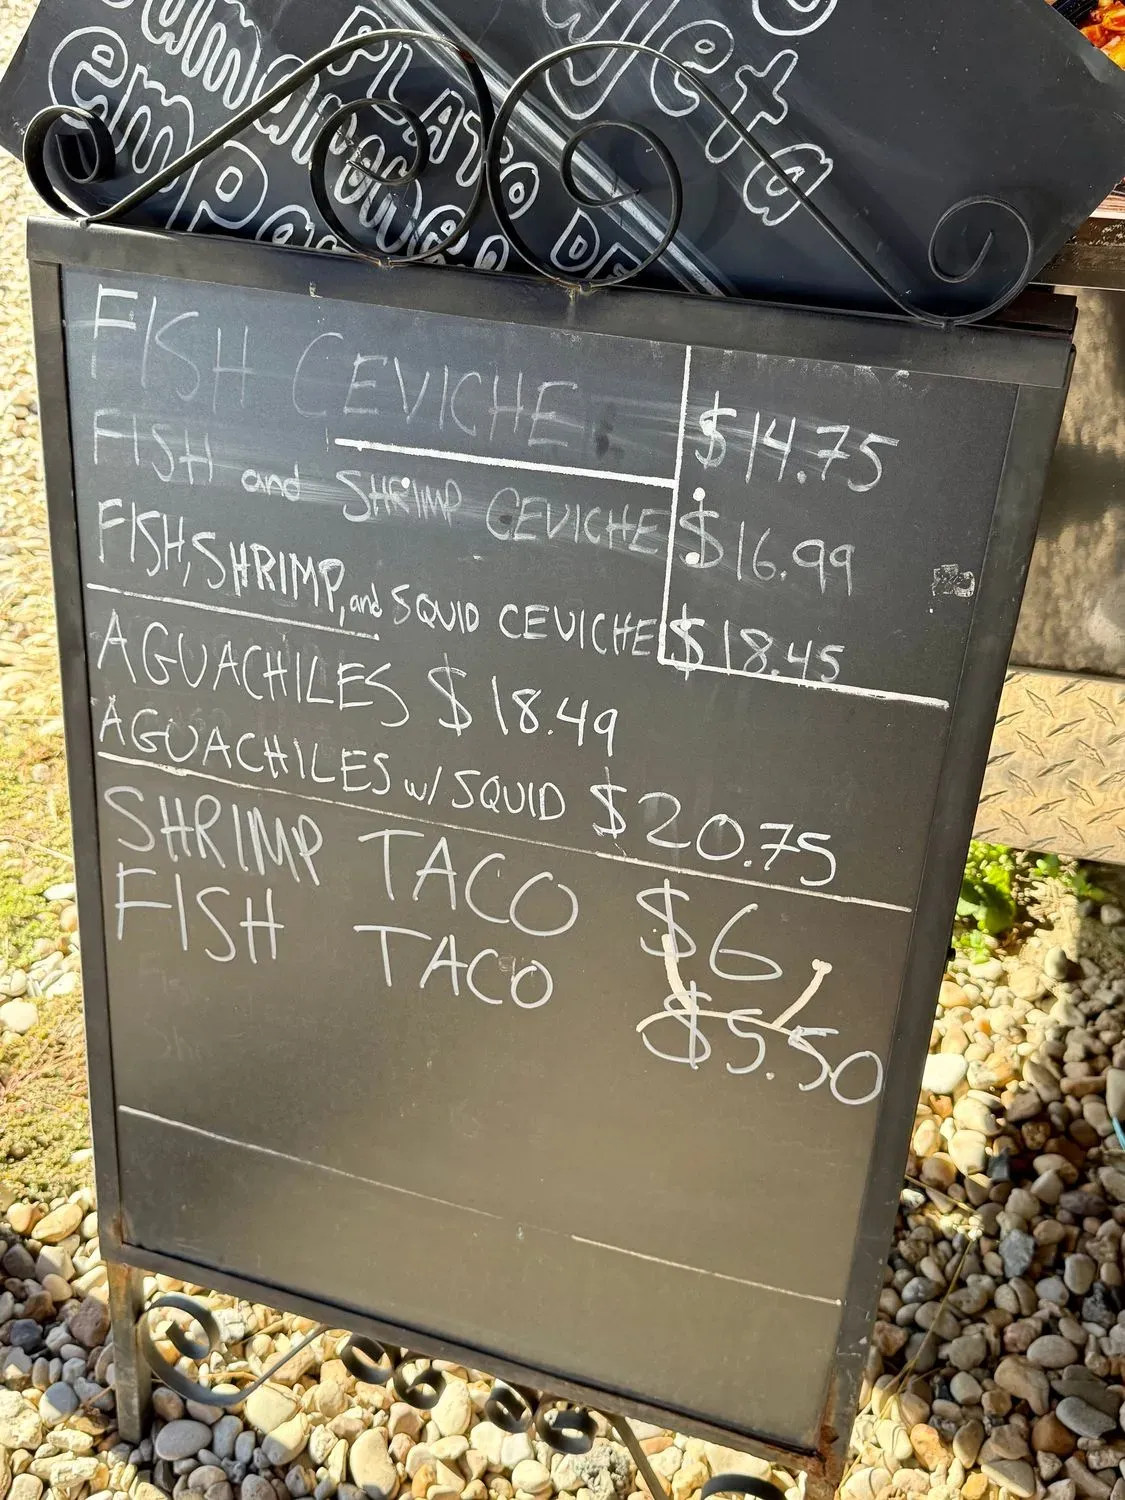 PLATO DE
FISH CEVICHE $14.75
FISH and SHRIMP CEVICHE $16.99
FISH, SHRIMP, and SQUID CEVICHE $18.45
AGUACHILES $18.49
AGUACHILES w/ SQUID $20.75
SHRIMP TACO $6
FISH TACO $5.50